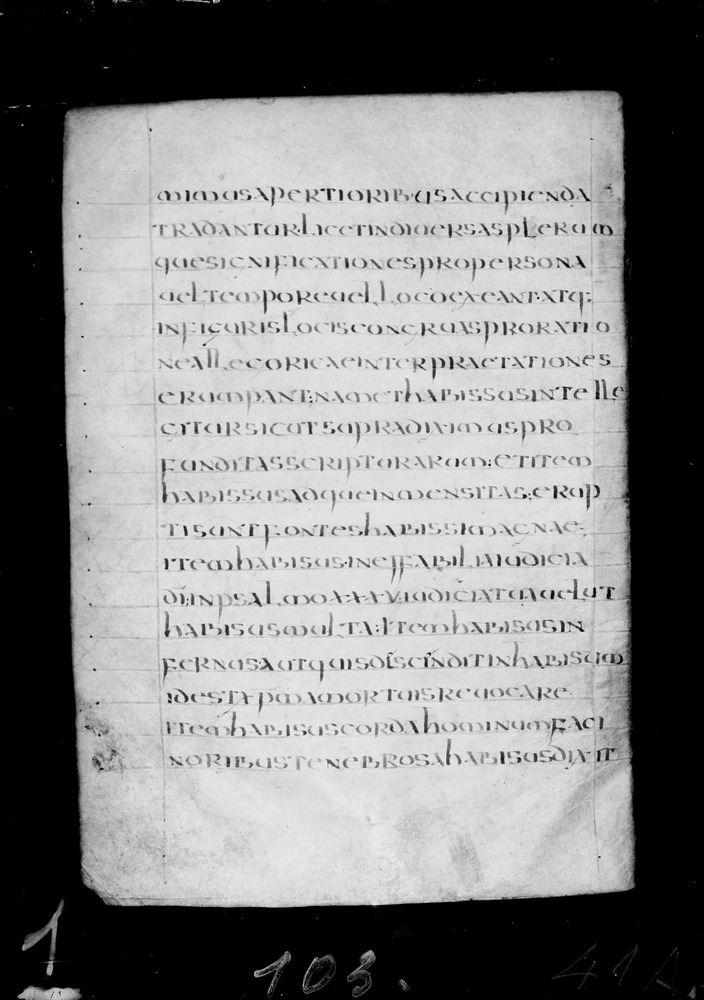 mimusapertioribusaccipienda
tradantur·licetindiuersasplerum
quesignificationespropersona
ueltemporeuellocoexeant·atq:
infigurislocisconcruasproratio
neallegoricaeinterpraetationes
erumpant:namethabissusintelle
citursicutsupradiximuspro
funditasscripturarum:etitem
habissusadqueinmensitas;erup
tisuntfonteshabissimagnae:
itemhabisus·ineffabiliaiudicia
di:inpsalmoxxxv·iudiciatuauelut
habisusmulta:itemhabisusin
fernus·autquisdiscinditinhabisum
idestxpmamortuisreuocare:
itemhabisuscordahominumfaci
noribustenebrosahabisusdixit
1
103.
41A.